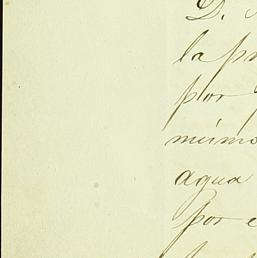 D.
la pr
por
mismo
agua
por e